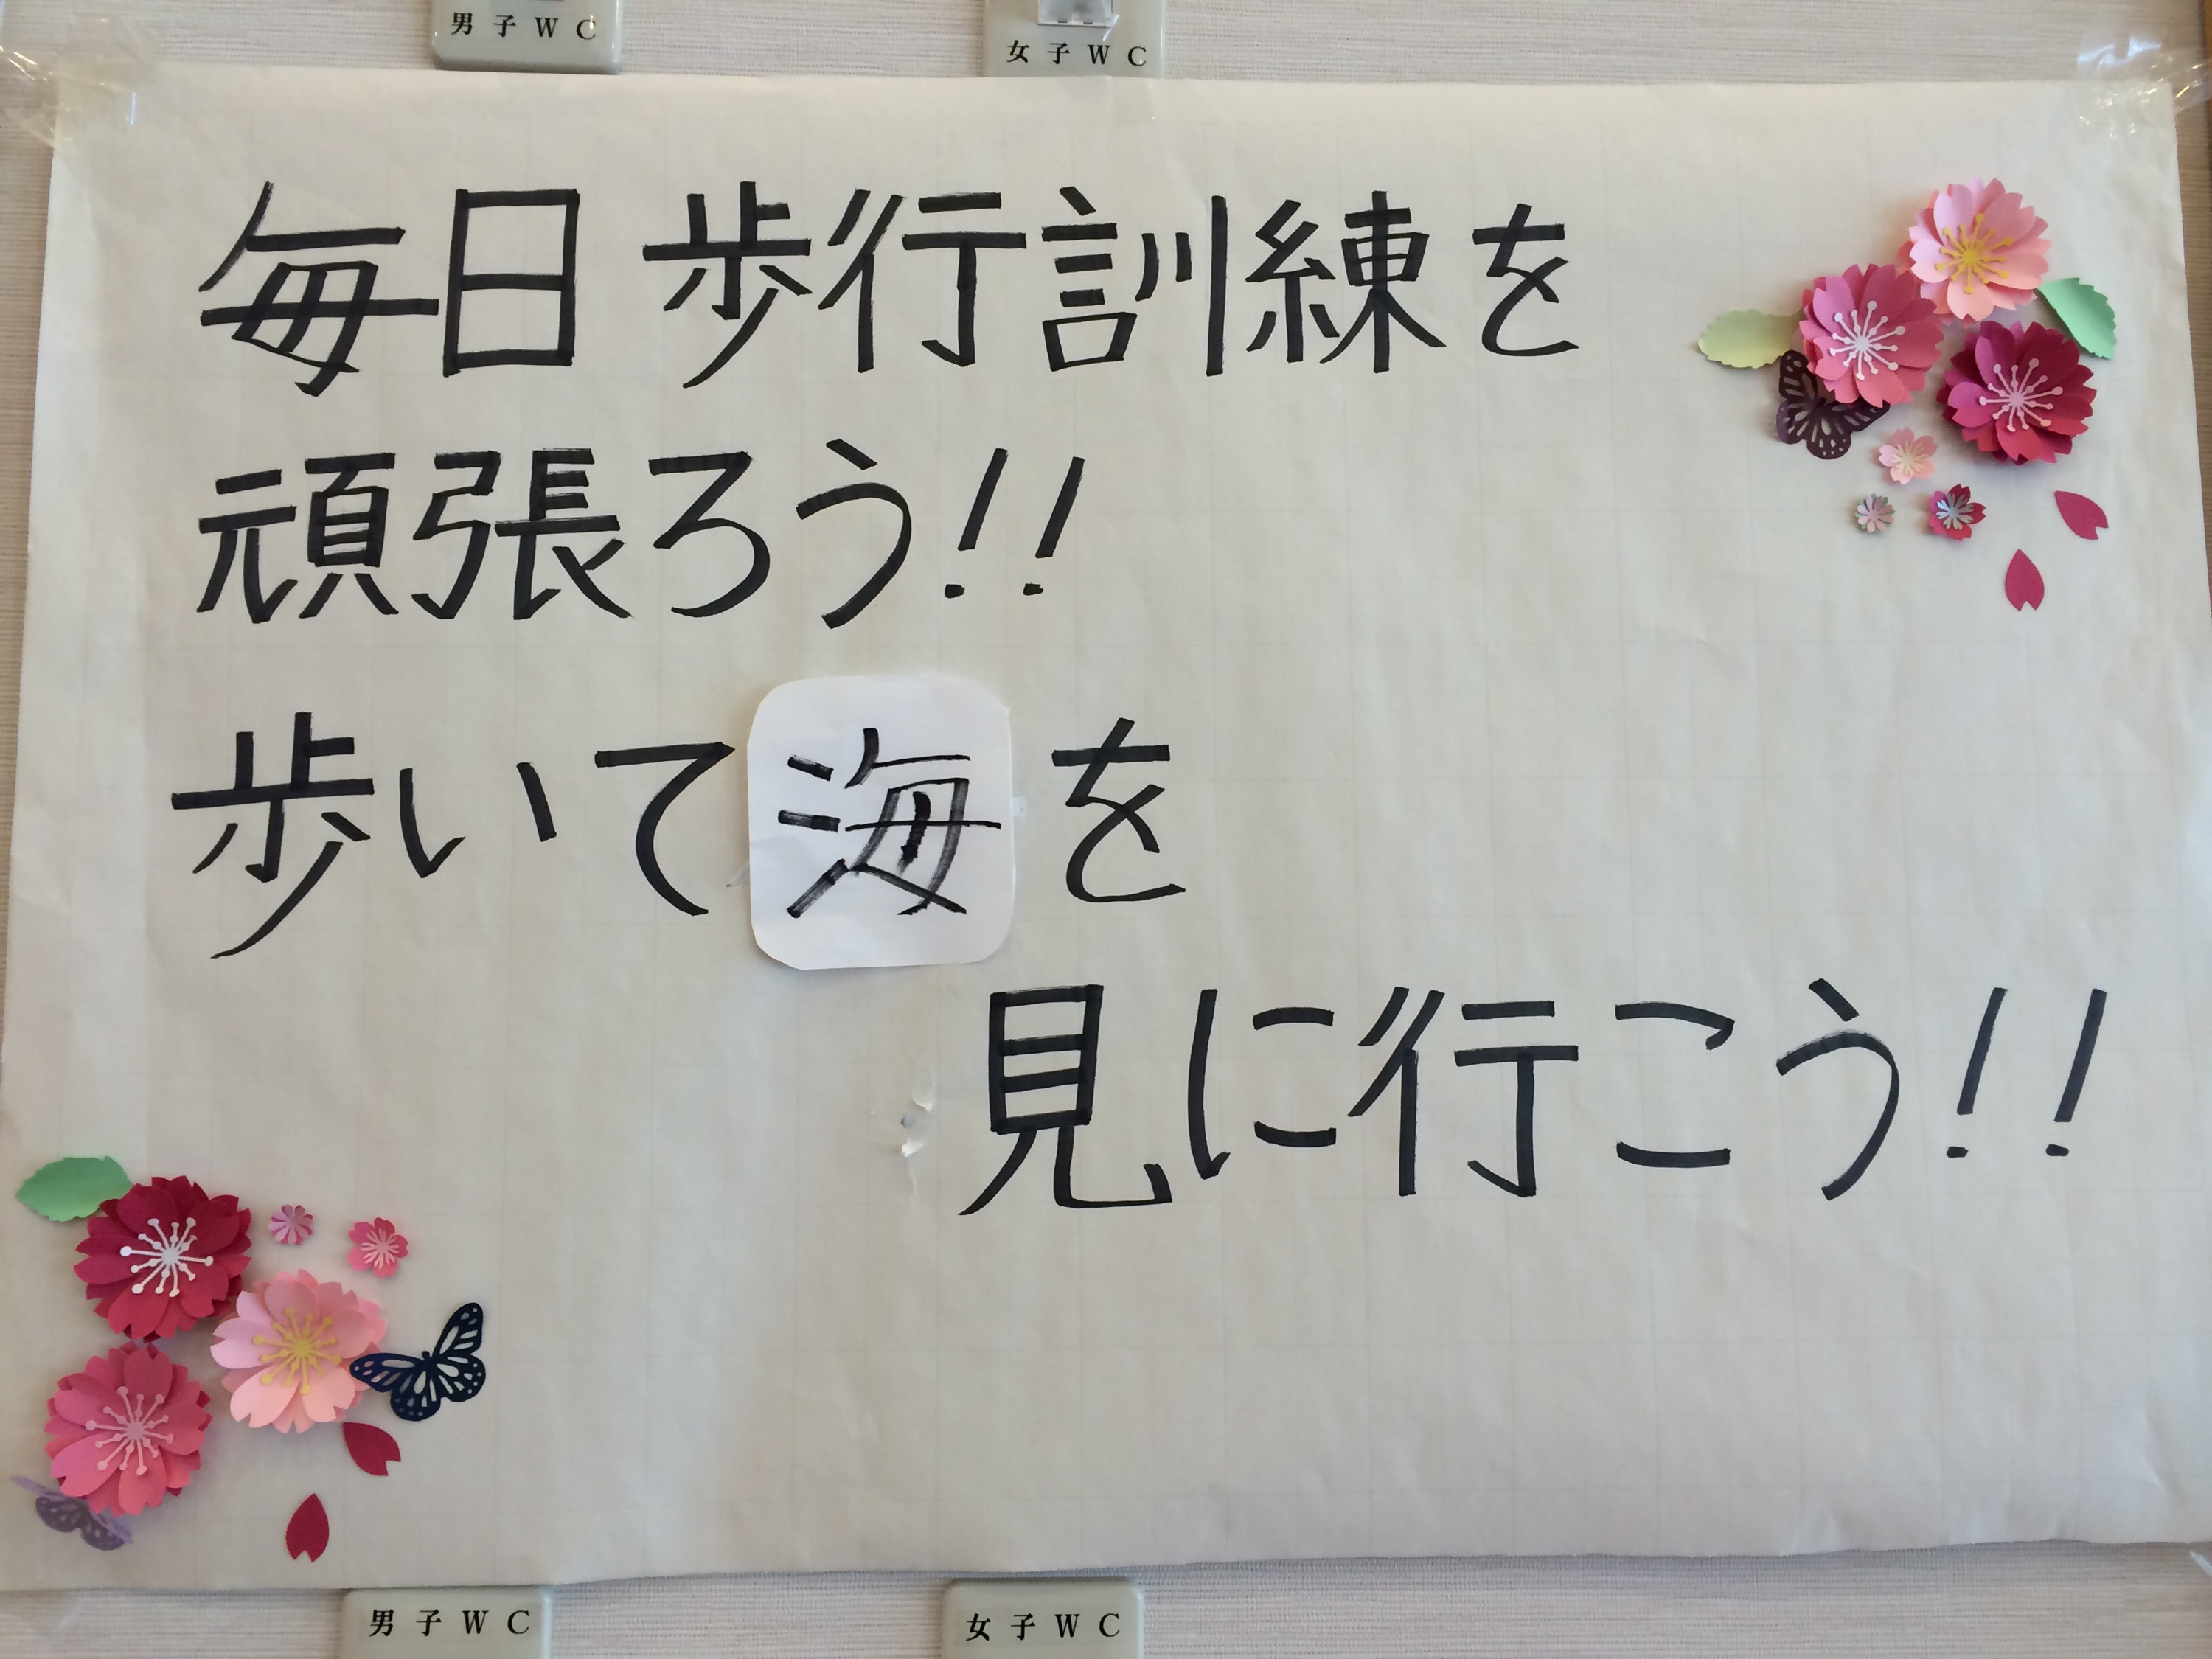 男子WC
女子WC
毎日 歩行訓練を
頑張ろう!!
歩いて海を
見に行こう!!
男子WC
女子WC